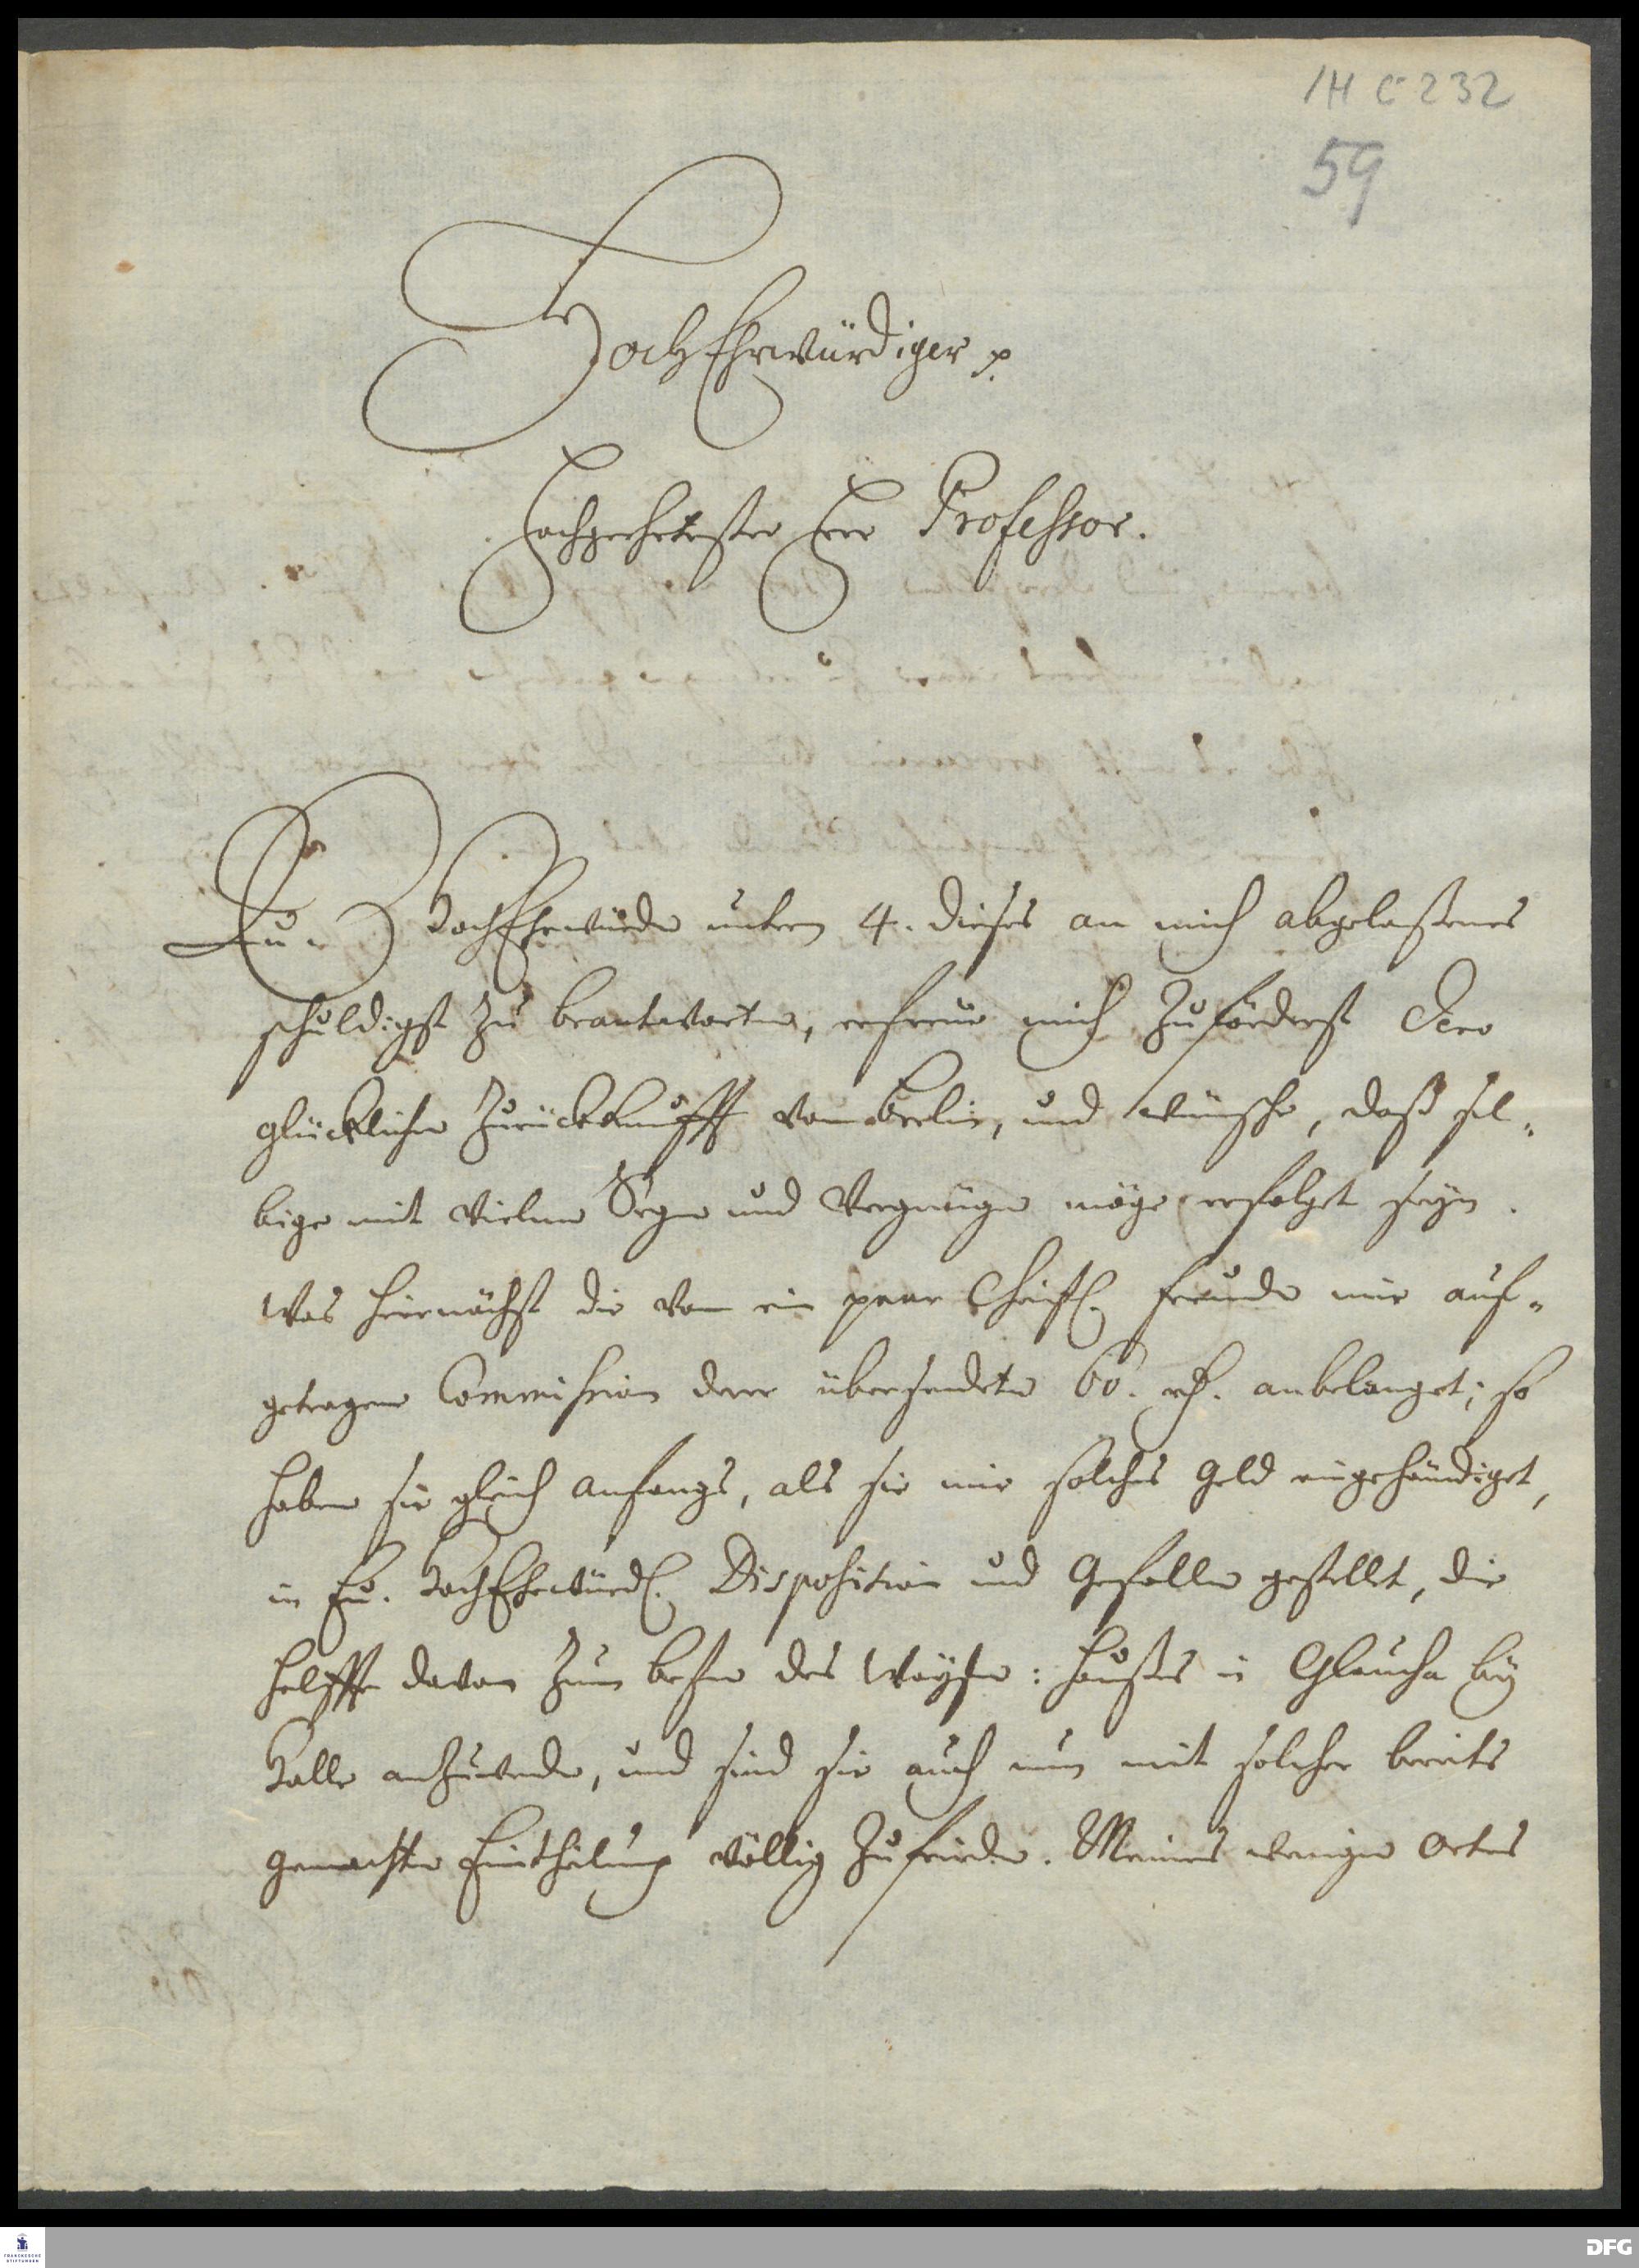 1H C 232
59
HochEhrwürdiger p.
Hochgeehrtester Herr Professor.
Eu. HochEhrwürden unterm 4. dieses an mich abgelaßenes
schuldigst zu beantworten, erfreue mich zuförderst Dero
glücklichen Zurückkunfft von Berlin, und wünsche, daß sel-
bige mit vielem Segen und Vergnügen möge erfolget seyn.
Was hiernächst die von ein paar Christl. Freunden mir auf-
getragene Commission derer übersendeten 60. rth. anbelanget; so
haben sie gleich anfangs, als sie mir solches Geld eingehändiget,
in Eu. HochEhrwürd. Disposition und Gefallen gestellet, die
Helffte davon zum besten des Waysen-Hauses in Glaucha bey
Halle anzuwenden, und sind sie auch nun mit solcher bereits
gemachten Eintheilung völlig zufrieden. Meines wenigen Ortes
FRANCKESCHE STIFTUNGEN
DFG